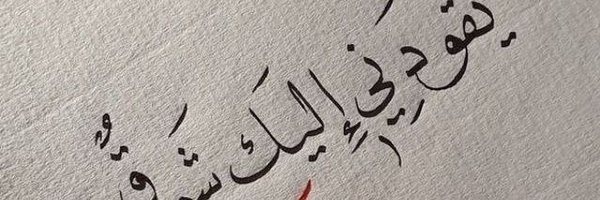 يقودني إليَك شَوقٌ